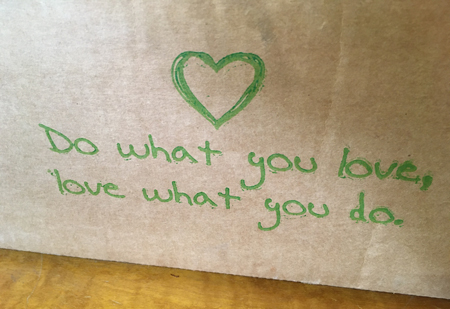 Do what you love,
love what you do.